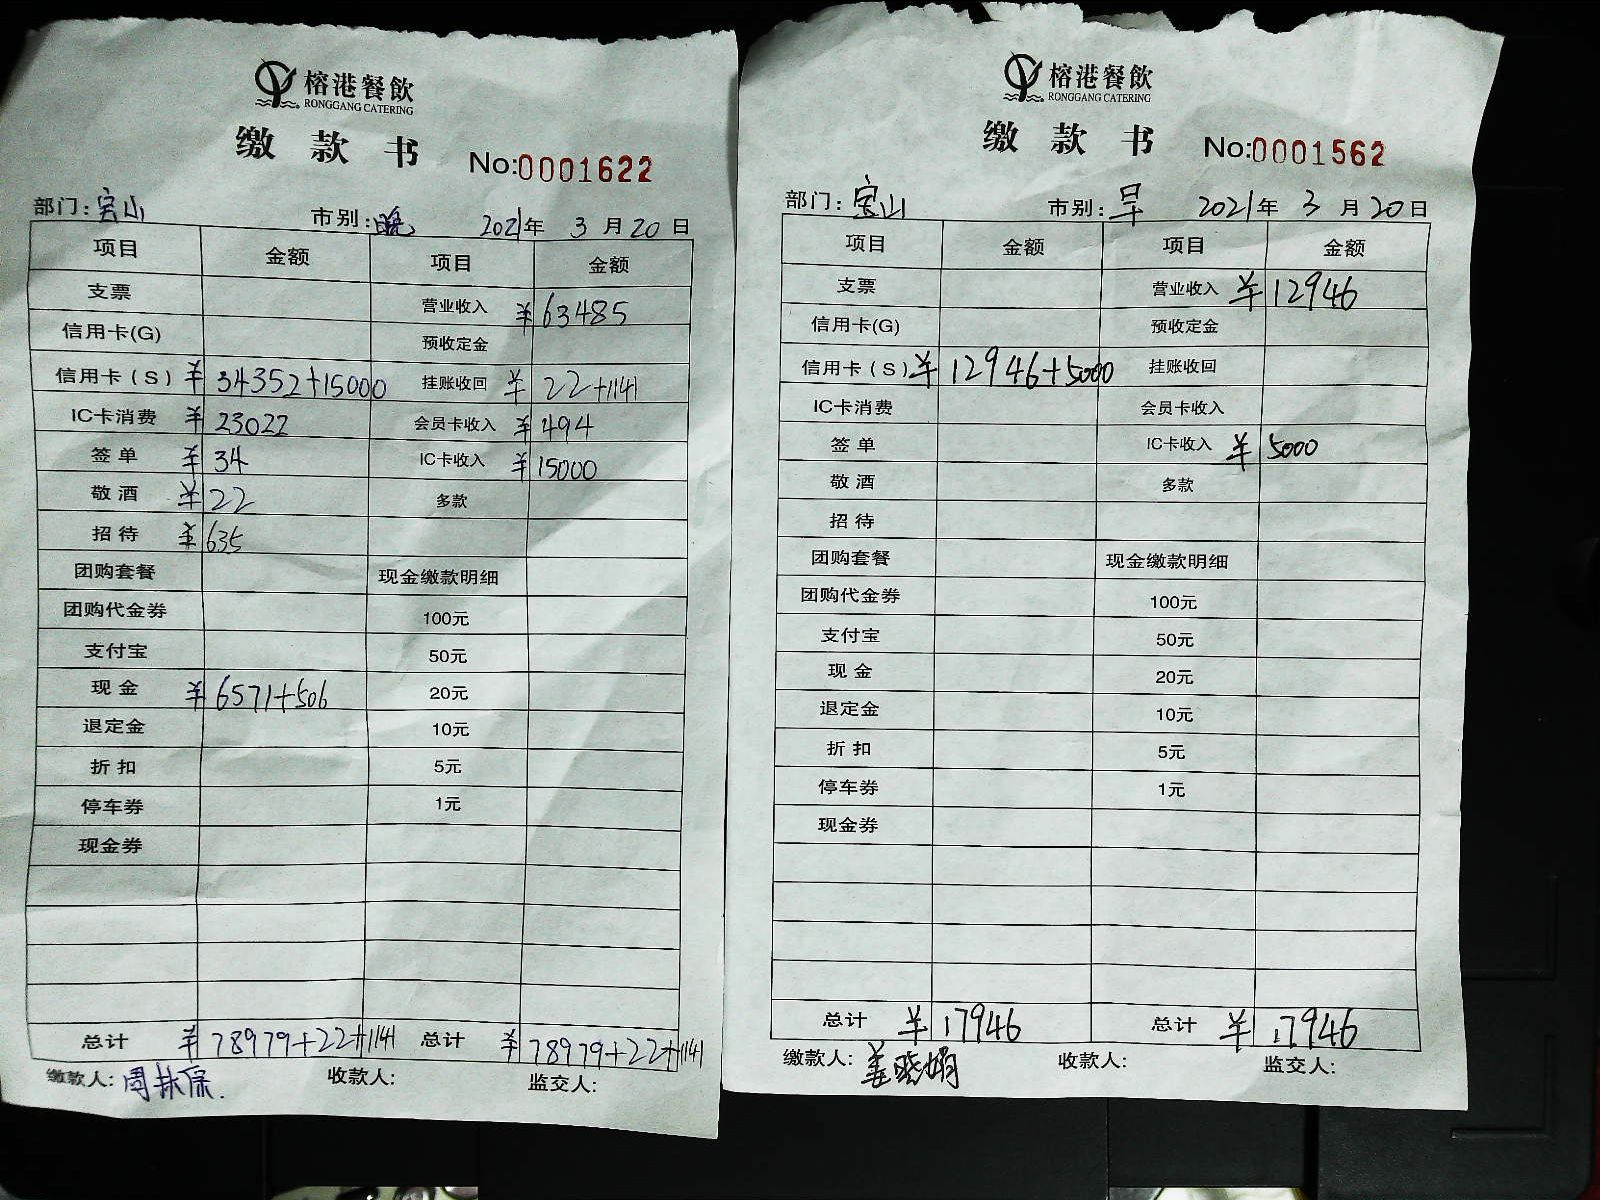 榕港餐飲
RONGGANG CATERING
缴款书
No:0001622
部门:宝山 市别:晚 2021年3月20日
项目 金额 项目 金额
支票 营业收入 ¥63485
信用卡(G) 预收定金
信用卡(S) ¥34352+15000 挂账收回 ¥22+1141
IC卡消费 ¥23022 会员卡收入 ¥494
签单 ¥34 IC卡收入 ¥15000
敬酒 ¥22 多款
招待 ¥635
团购套餐 现金缴款明细
团购代金券 100元
支付宝 50元
现金 ¥6571+506 20元
退定金 10元
折扣 5元
停车券 1元
现金券
总计 ¥78979+22+1141 总计 ¥78979+22+1141
缴款人:周 收款人: 监交人:
榕港餐飲
RONGGANG CATERING
缴款书
No:0001562
部门:宝山 市别:早 2021年3月20日
项目 金额 项目 金额
支票 营业收入 ¥12946
信用卡(G) 预收定金
信用卡(S) ¥12946+5000 挂账收回
IC卡消费 会员卡收入
签单 IC卡收入 ¥5000
敬酒 多款
招待
团购套餐 现金缴款明细
团购代金券 100元
支付宝 50元
现金 20元
退定金 10元
折扣 5元
停车券 1元
现金券
总计 ¥17946 总计 ¥17946
缴款人:姜晓娟 收款人: 监交人: